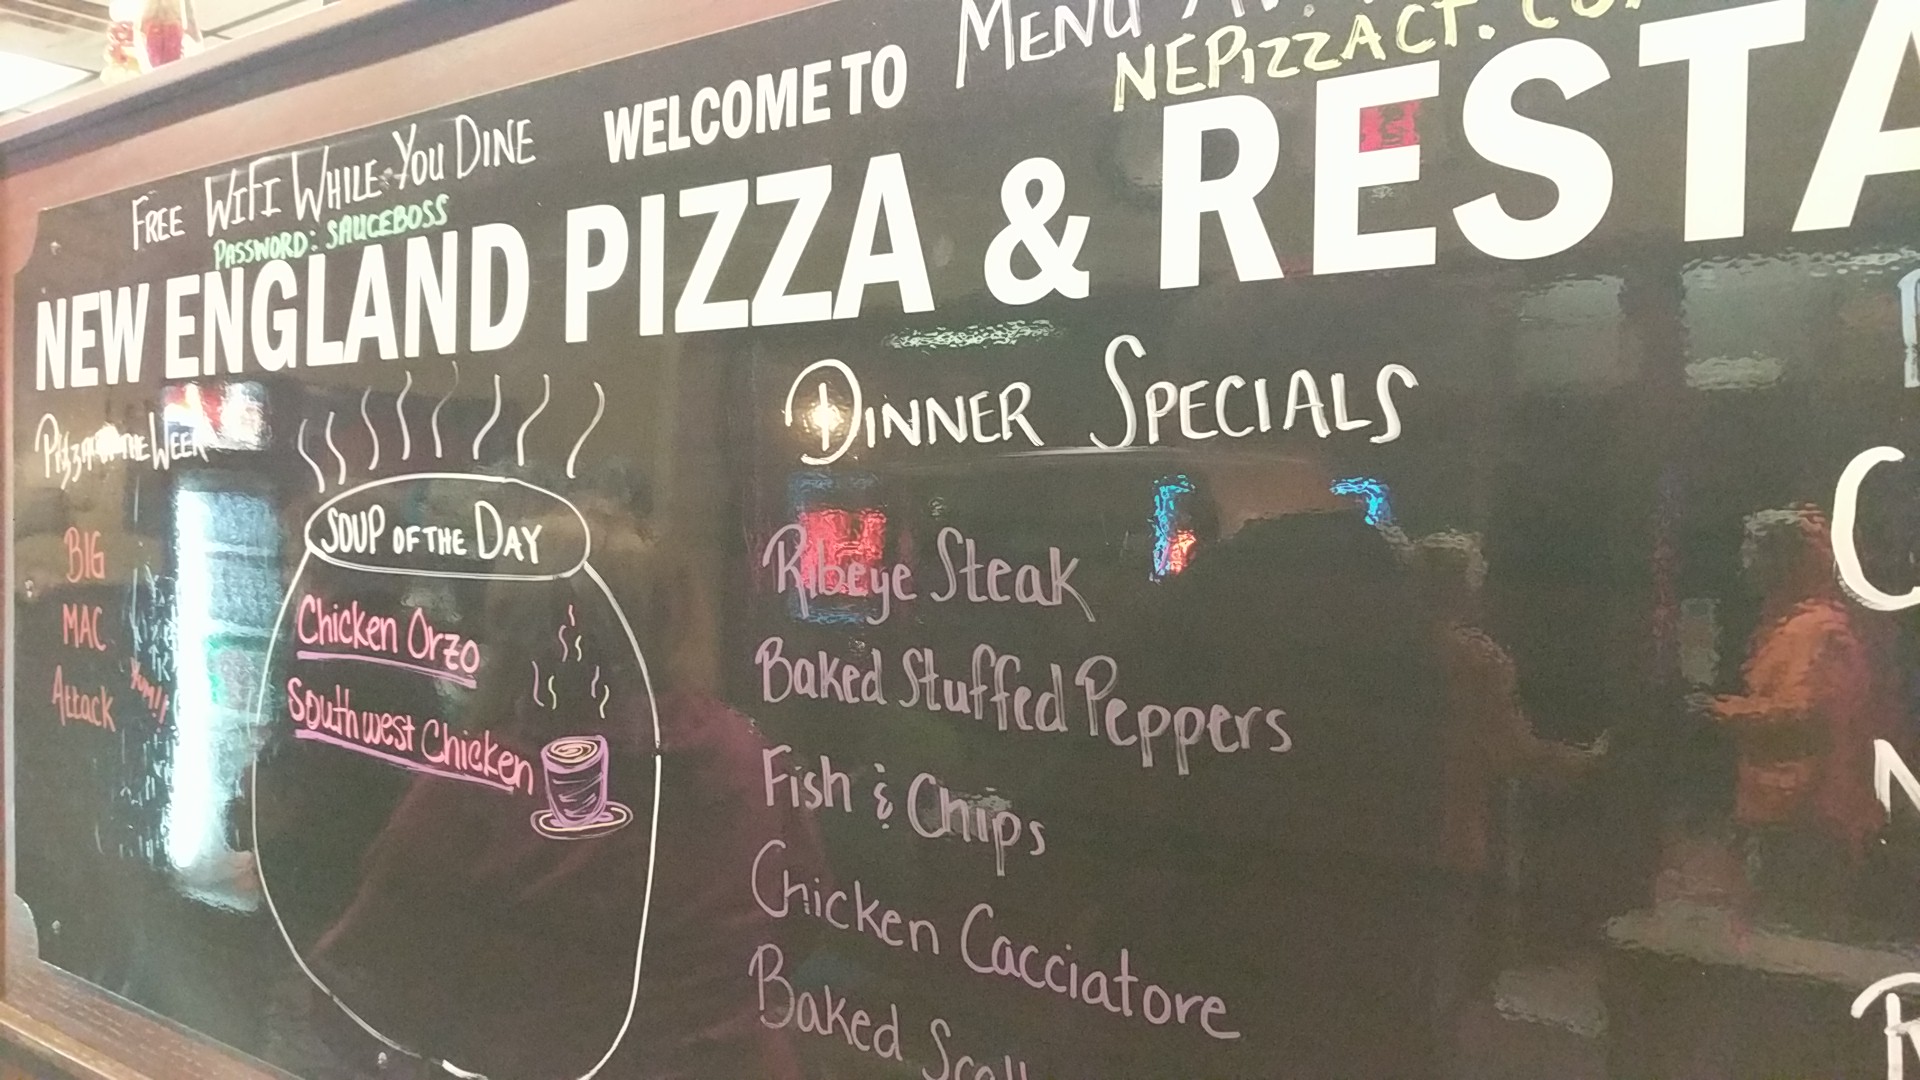 MENU
NEPIZZACT.CO
FREE WIFI WHILE YOU DINE
PASSWORD: SAUCEBOSS
WELCOME TO
NEW ENGLAND PIZZA & RESTA
PIZZA OF THE WEEK
BIG
MAC
Attack
Yum!!
SOUP OF THE DAY
Chicken Orzo
Southwest Chicken
DINNER SPECIALS
Ribeye Steak
Baked Stuffed Peppers
Fish & Chips
Chicken Cacciatore
Baked Scall